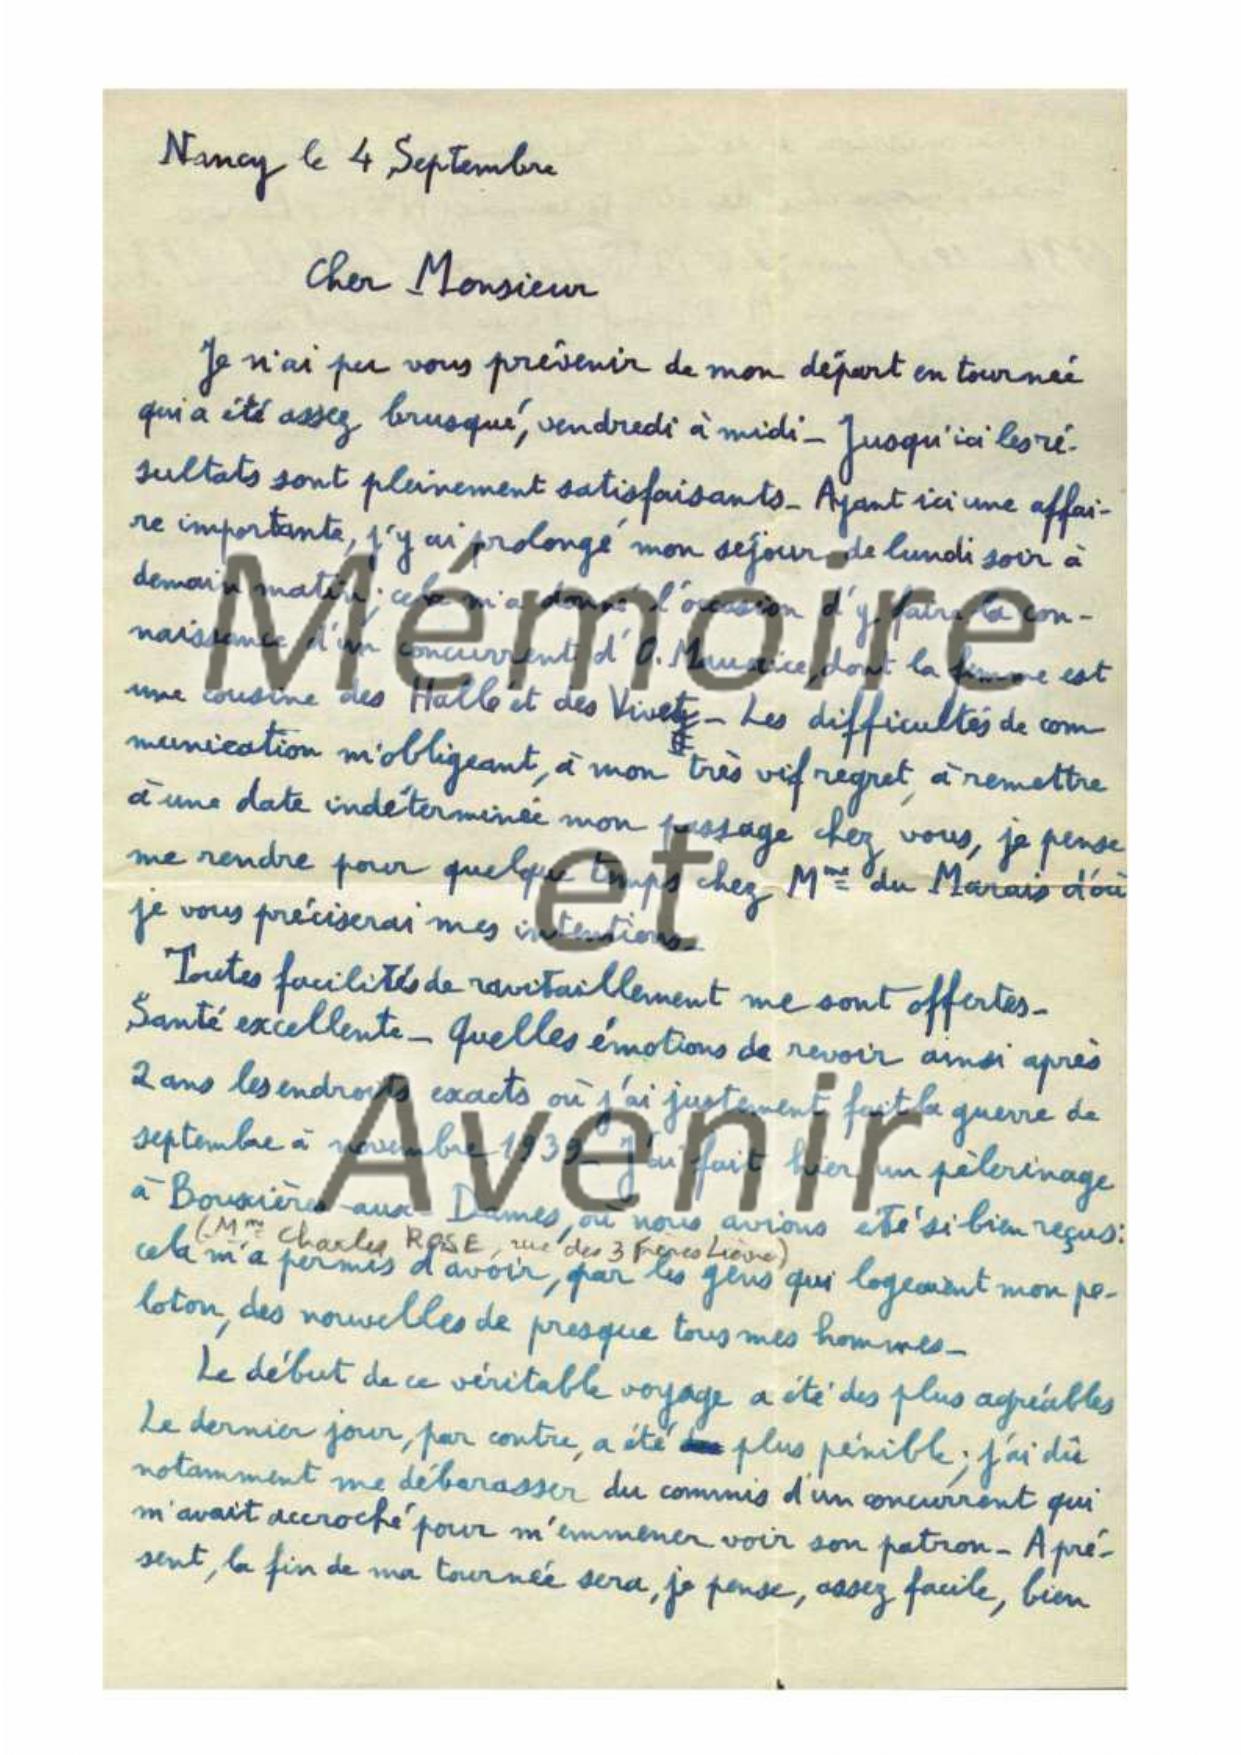 Nancy le 4 Septembre
Cher Monsieur
Je n'ai pu vous prévenir de mon départ en tournée
qui a été assez brusqué, vendredi à midi - Jusqu'ici les ré-
sultats sont pleinement satisfaisants - Ayant ici une affai-
re importante, j'y ai prolongé mon séjour de lundi soir à
demain matin; cela m'a donné l'occasion d'y faire la con-
naissance d'un concurrent d'O. Maurice, dont la femme est
une cousine des Hallé et des Vivetz - Les difficultés de com
munication m'obligeant, à mon très vif regret, à remettre
à une date indéterminée mon passage chez vous, je pense
me rendre pour quelque temps chez Mme du Marais d'où
je vous préciserai mes intentions -
Toutes facilités de ravitaillement me sont offertes -
Santé excellente - Quelles émotions de revoir ainsi après
2 ans les endroits exacts où j'ai justement fait la guerre de
septembre à novembre 1939 - J'ai fait hier un pèlerinage
à Bouxières-aux-Dames, où nous avions été si bien reçus:
(Mme Charles ROSE, rue des 3 Frères Lièvre)
cela m'a permis d'avoir, par les gens qui logeaient mon pe-
loton, des nouvelles de presque tous mes hommes -
Le début de ce véritable voyage a été des plus agréables
Le dernier jour, par contre, a été plus pénible; j'ai dû
notamment me débarasser du commis d'un concurrent qui
m'avait accroché pour m'emmener voir son patron - A pré-
sent, la fin de ma tournée sera, je pense, assez facile, bien
Mémoire
et
Avenir